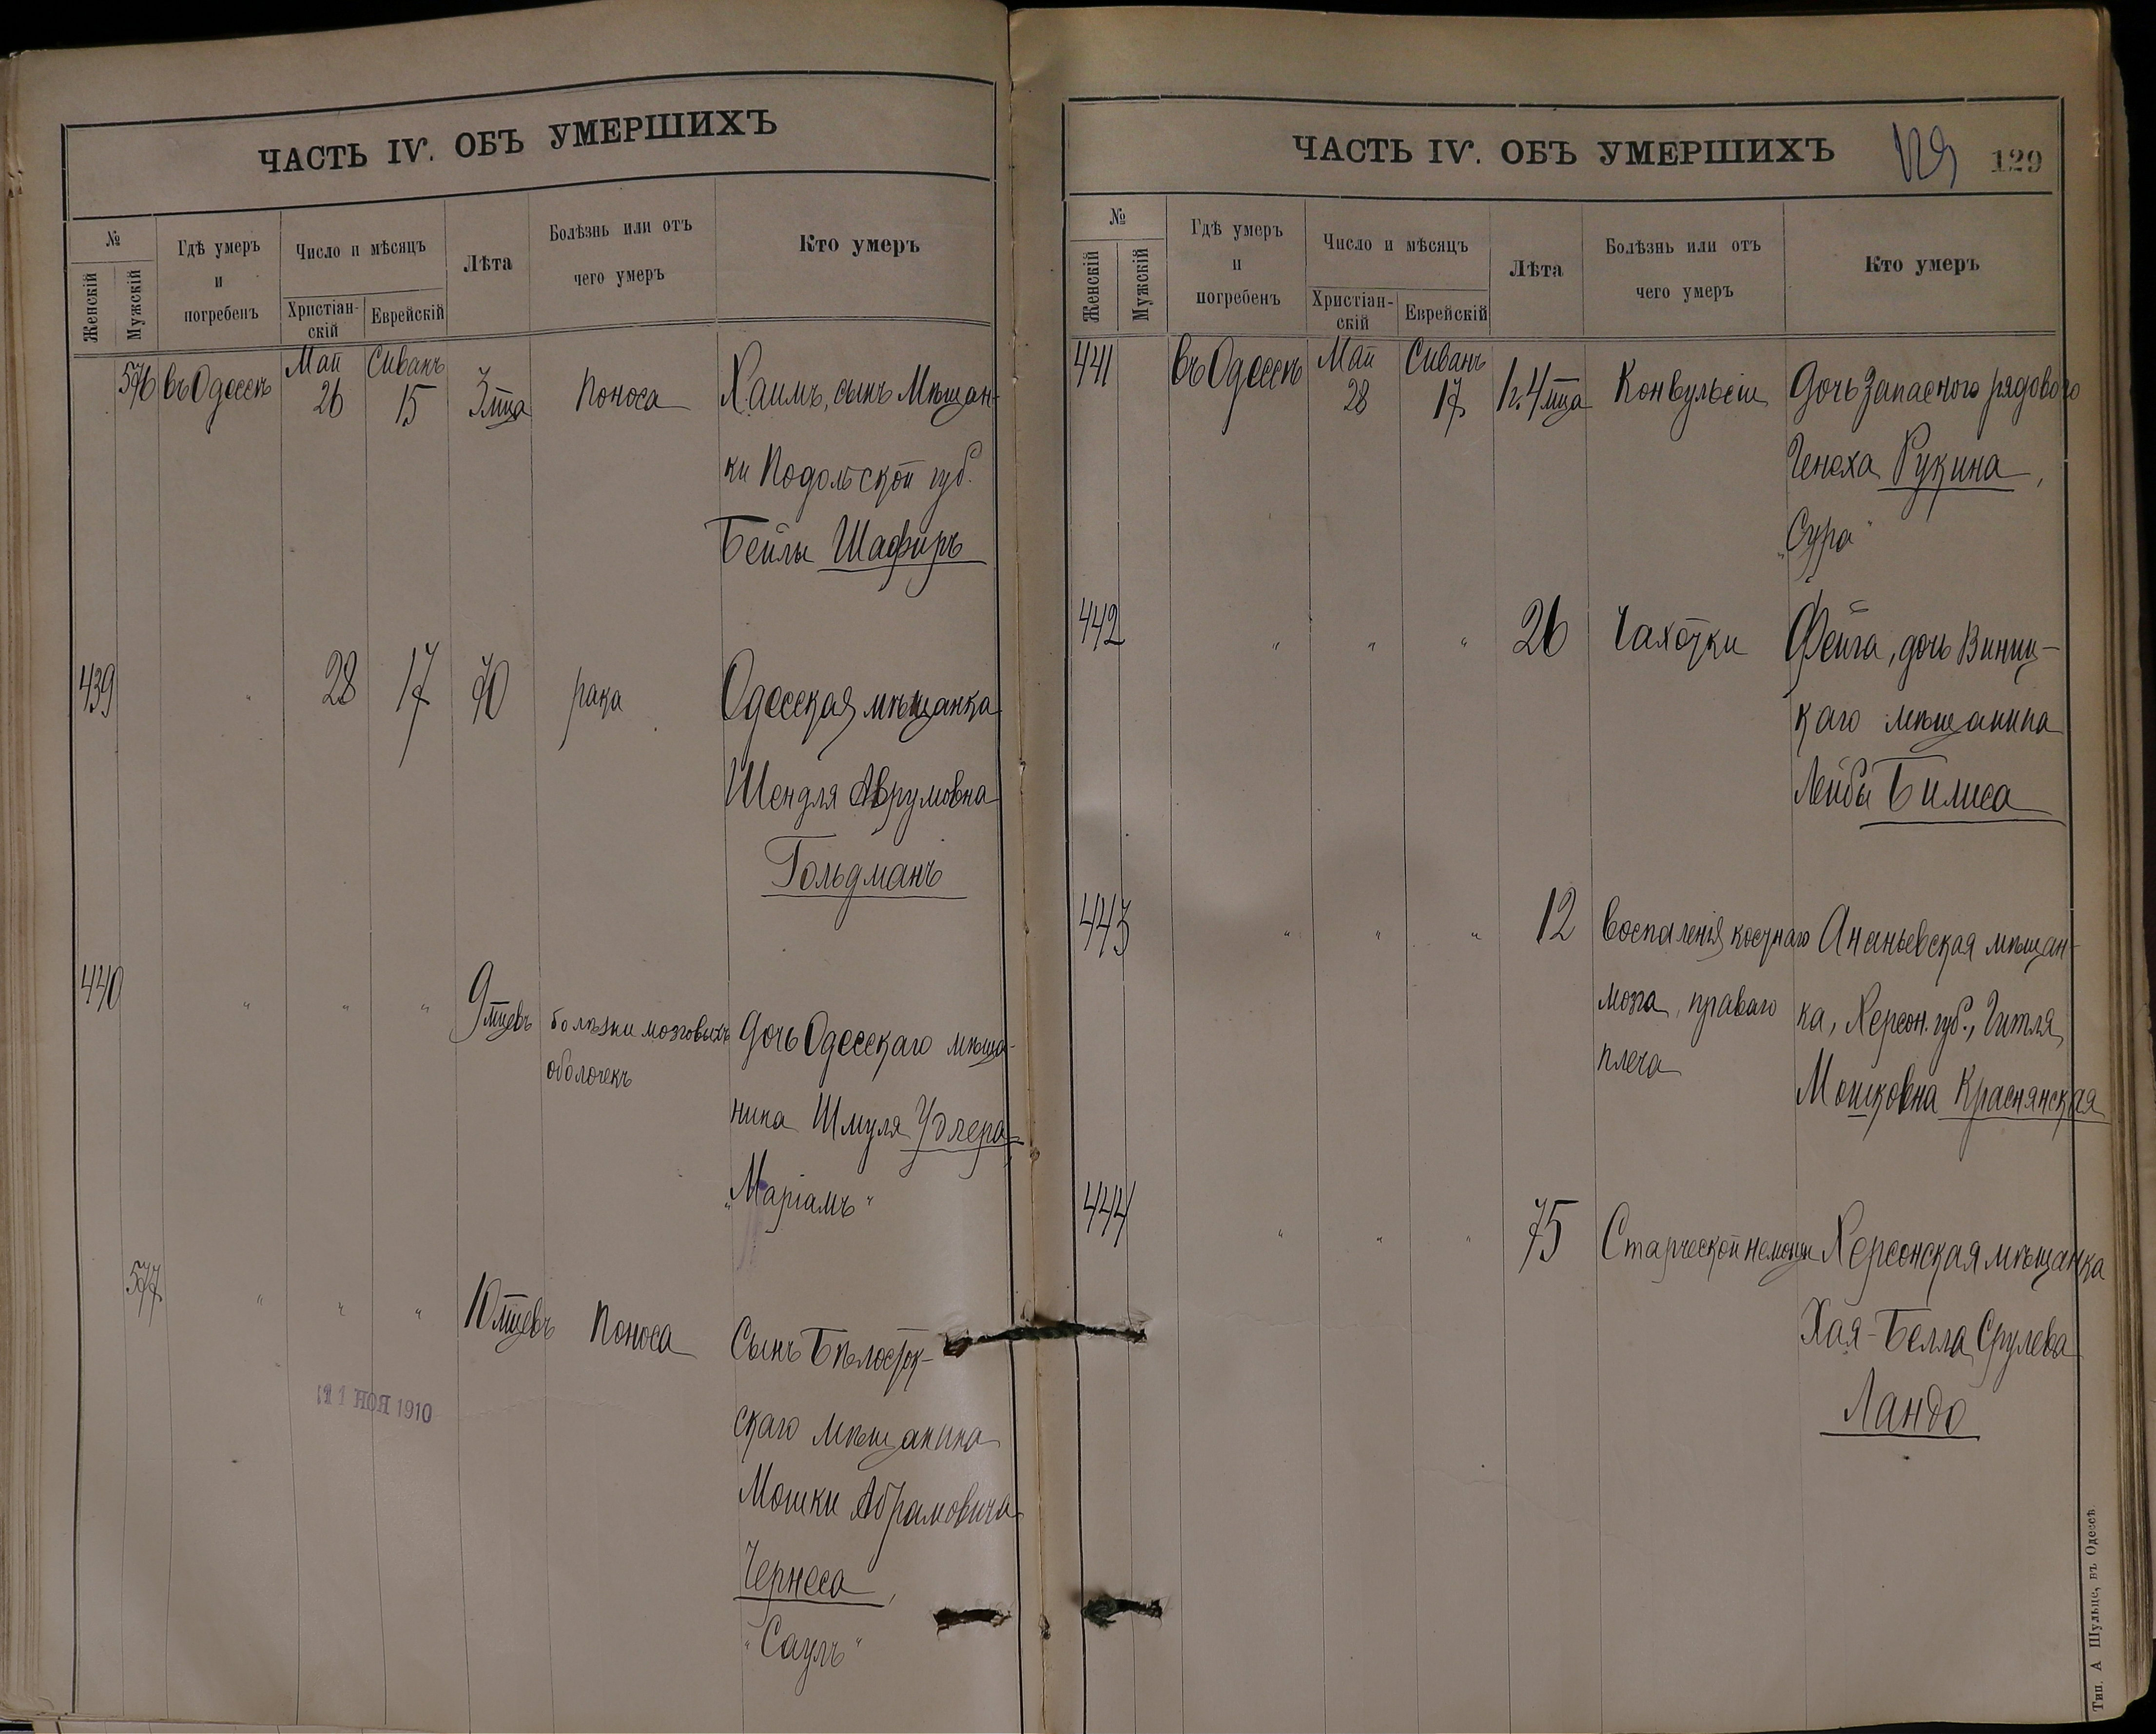 ЧАСТЬ IV. ОБЪ УМЕРШИХЪ
№
Женскій
Мужскій
Гдѣ умеръ
и
погребенъ
Число и мѣсяцъ
Христіан-
скій
Еврейскій
Лѣта
Болѣзнь или отъ
чего умеръ
Кто умеръ
576 въ Одессѣ Май 26 Сиванъ 15 3 мца Поноса Хаимъ, сынъ Мѣщан-
ки Подольской губ.
Бейлы Шафиръ
439 " 28 17 70 рака Одесская мѣщанка
Шендля Аврумовна
Гольдманъ
440 " " " 9 мцевъ болѣзни мозговыхъ Дочь Одесскаго мѣща-
оболочекъ
нина Шмуля
„Маріамъ"
577 " " " 10 мцевъ Поноса Сынъ Бѣлосток-
скаго мѣщанина
Мошки Абрамовича
Чернеса,
"Саулъ"
11 НОЯ 1910
ЧАСТЬ IV. ОБЪ УМЕРШИХЪ
129
129
№
Женскій
Мужскій
Гдѣ умеръ
и
погребенъ
Число и мѣсяцъ
Христіан-
скій
Еврейскій
Лѣта
Болѣзнь или отъ
чего умеръ
Кто умеръ
441 въ Одессѣ Май 28 Сиванъ 17 1 г. 4 мца Конвульсіи Дочь запасного рядового
Генеха Рукина,
„Сура"
442 " " " 26 Чахотки Фейга, дочь Винниц-
каго мѣщанина
Лейбы Билиса
443 " " " 12 Воспаленія костнаго Ананьевская мѣщан-
мозга, праваго ка, Херсон. губ., Гитля
плеча
Мошковна Краснянская
444 " " " 75 Старческой немощи Херсонская мѣщанка
Хая-Белла Срулева
Ландо
Тип. А Шульце, въ Одессѣ